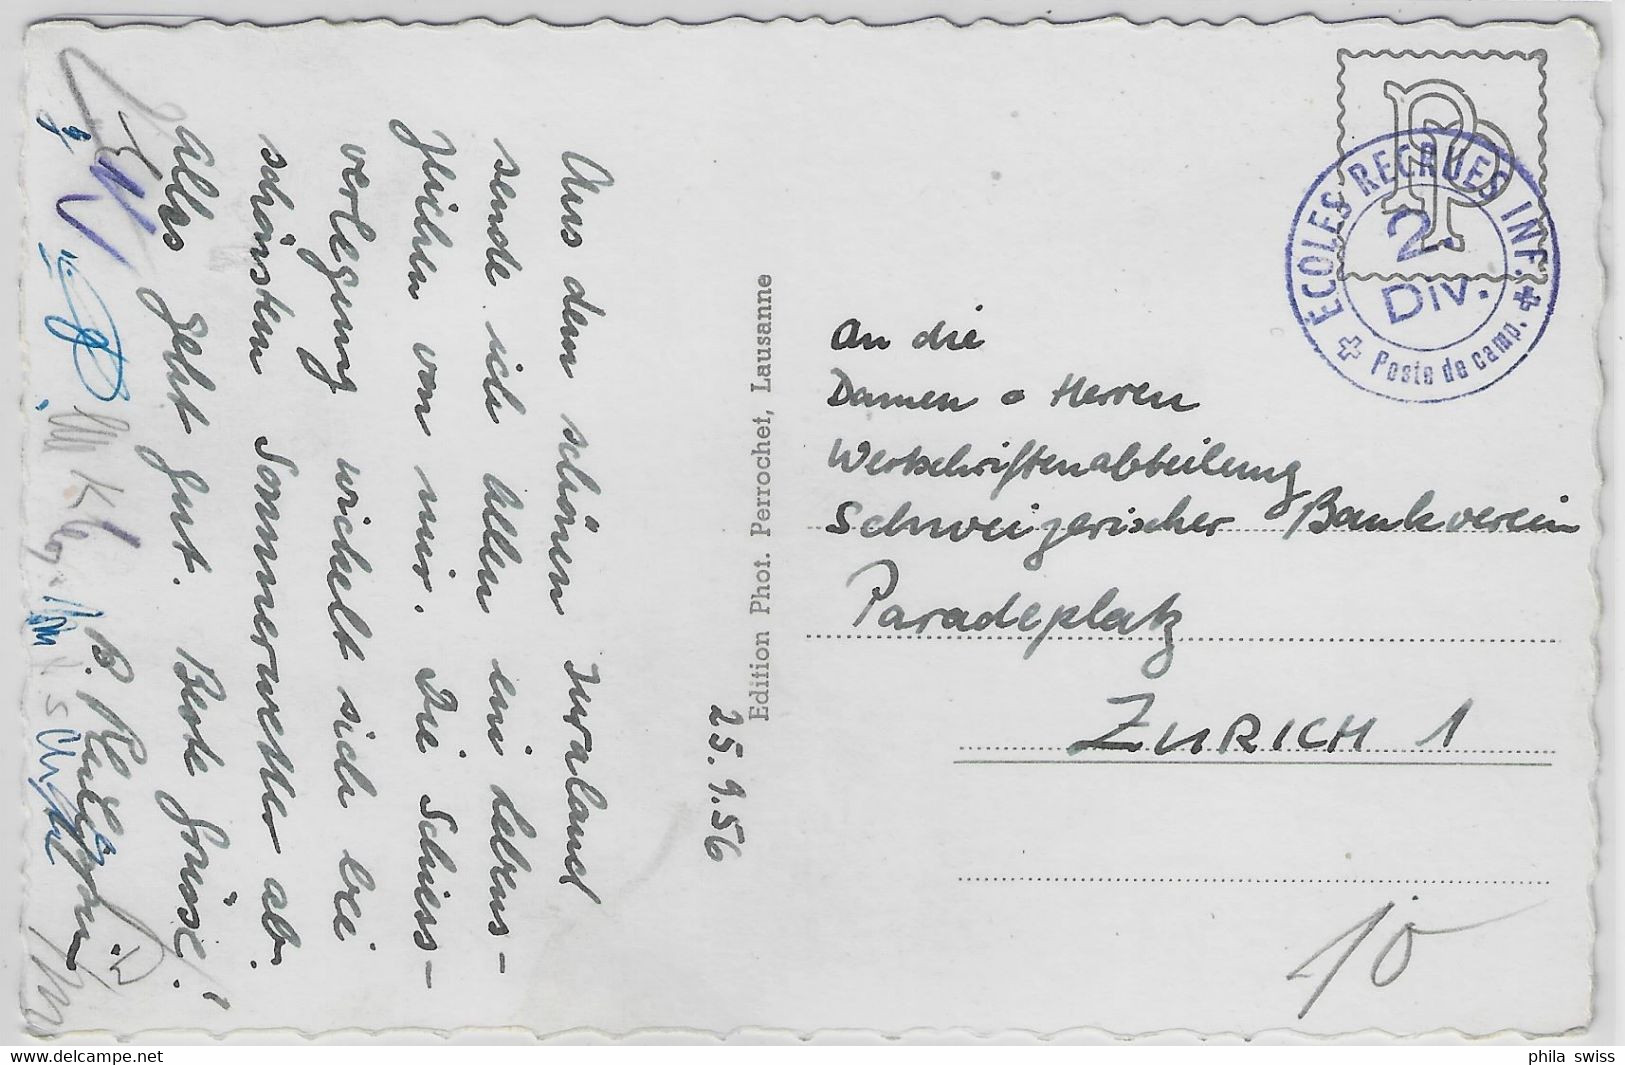 Aus dem schönen Juraland
sende ich allen ein Lebens-
zeichen von mir. Die Schiess-
verlegung wickelt sich bei
schönstem Sommerwetter ab.
Alles geht gut. Beste Grüsse!
25.9.56
Edition Phot. Perrochet, Lausanne
PP
ÉCOLES RECRUES INF.
2.
Div.
Poste de camp.
An die
Damen & Herren
Wertschriftenabteilung
Schweizerischer Bankverein
Paradeplatz
ZURICH 1
10
www.delcampe.net
phila swiss